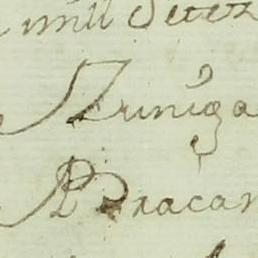 mill Setez
Zuniga
Bracan